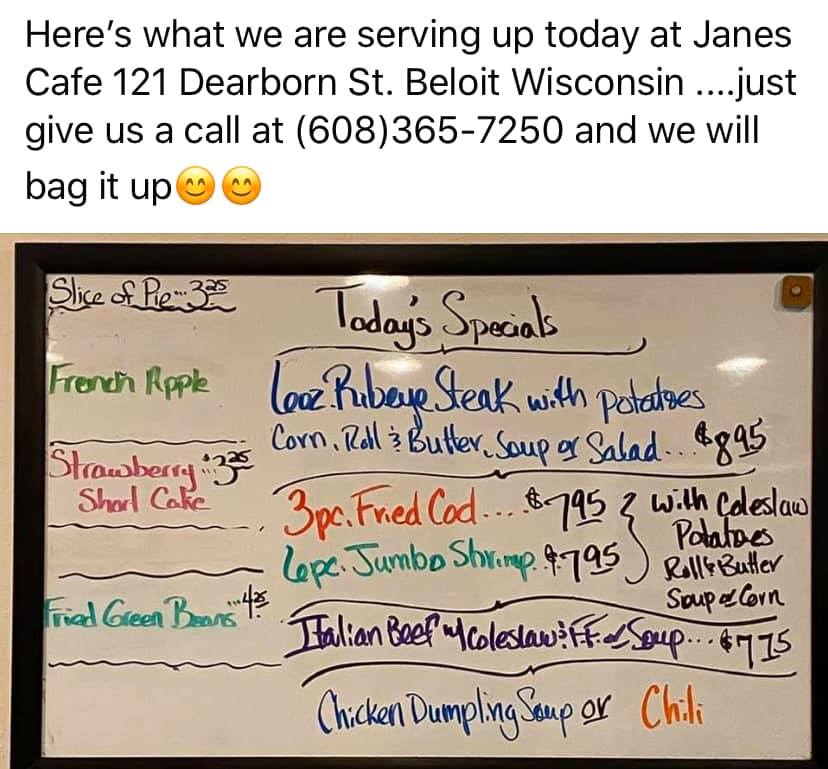 Here's what we are serving up today at Janes
Cafe 121 Dearborn St. Beloit Wisconsin ....just
give us a call at (608)365-7250 and we will
bag it up😊😊
Slice of Pie...3.25
French Apple
Strawberry...$3.25
Short Cake
Fried Green Beans...4.25
Today's Specials
6oz Ribeye Steak with potatoes
Corn, Roll & Butter, Soup or Salad...$8.95
3pc. Fried Cod....$7.95
6pc. Jumbo Shrimp. $7.95
with Coleslaw
Potatoes
Roll & Butter
Soup or Corn
Italian Beef w/Coleslaw & FF. or Soup...$7.75
Chicken Dumpling Soup or Chili